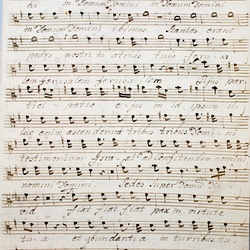 in Domum Domini in Domum Domini
in Domum Domini ibimus Stantes erant
pedes nostri in atriis tuis
lem Jerusalem Jerusalem cujus par
ticipatio ejus in id ipsum il
luc enim ascenderunt tribus tribus Domini
testimonium Israel ad confitendum nomini
nomini Domini. Sedes super Domum Da
vid fiat fiat fiat pax in virtute
tua et abundantia in turribus